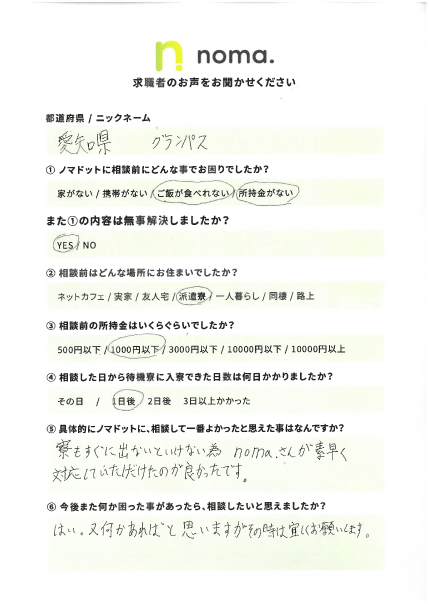 noma.
求職者のお声をお聞かせください
都道府県 / ニックネーム
愛知県 グランパス
① ノマドットに相談前にどんな事でお困りでしたか？
家がない / 携帯がない / ご飯が食べれない / 所持金がない
また①の内容は無事解決しましたか？
YES / NO
② 相談前はどんな場所にお住まいでしたか？
ネットカフェ / 実家 / 友人宅 / 派遣寮 / 一人暮らし / 同棲 / 路上
③ 相談前の所持金はいくらぐらいでしたか？
500円以下 / 1000円以下 / 3000円以下 / 10000円以下 / 10000円以上
④ 相談した日から待機寮に入寮できた日数は何日かかりましたか？
その日 / 1日後 2日後 3日以上かかった
⑤ 具体的にノマドットに、相談して一番よかったと思えた事はなんですか？
寮もすぐに出ないといけない為 noma.さんが素早く
対応していただけたのが良かったです。
⑥ 今後また何か困った事があったら、相談したいと思えましたか？
はい。又何かあればと思いますがその時は宜しくお願いします。